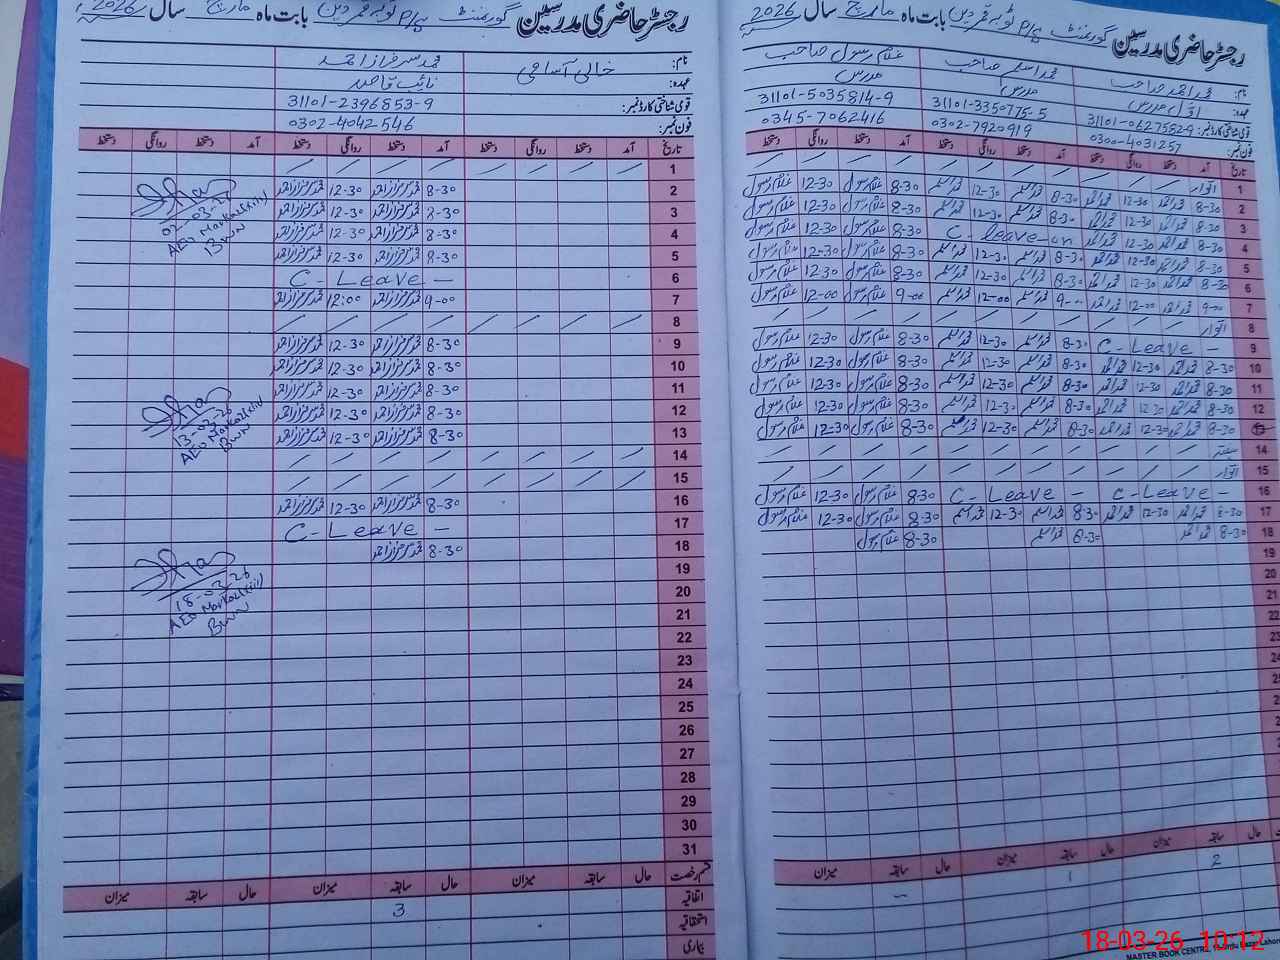 رجسٹر حاضری مدرسین گورنمنٹ P/س ٹوبہ قمر دین بابت ماہ مارچ سال 2026
نام: محمد احمد صاحب محمد اسلم صاحب غلام رسول صاحب
عہدہ: اول مدرس مدرس مدرس
قومی شناختی کارڈ نمبر: 31101-0627582-9 31101-3350775-5 31101-5035814-9
فون نمبر: 0300-4031257 0302-7920919 0345-7062416
تاریخ آمد دستخط روانگی دستخط آمد دستخط روانگی دستخط آمد دستخط روانگی دستخط
1 اتوار
2 8-30 محمد احمد 12-30 محمد احمد 8-30 محمد اسلم 12-30 محمد اسلم 8-30 غلام رسول 12-30 غلام رسول
3 8-30 محمد احمد 12-30 محمد احمد 8-30 محمد اسلم 12-30 محمد اسلم 8-30 غلام رسول 12-30 غلام رسول
4 8-30 محمد احمد 12-30 محمد احمد C-leave-on 8-30 غلام رسول 12-30 غلام رسول
5 8-30 محمد احمد 12-30 محمد احمد 8-30 محمد اسلم 12-30 محمد اسلم 8-30 غلام رسول 12-30 غلام رسول
6 8-30 محمد احمد 12-30 محمد احمد 8-30 محمد اسلم 12-30 محمد اسلم 8-30 غلام رسول 12-30 غلام رسول
7 9-00 محمد احمد 12-00 محمد احمد 9-00 محمد اسلم 12-00 محمد اسلم 9-00 غلام رسول 12-00 غلام رسول
8 اتوار
9 C-Leave - 8-30 محمد اسلم 12-30 محمد اسلم 8-30 غلام رسول 12-30 غلام رسول
10 8-30 محمد احمد 12-30 محمد احمد 8-30 محمد اسلم 12-30 محمد اسلم 8-30 غلام رسول 12-30 غلام رسول
11 8-30 محمد احمد 12-30 محمد احمد 8-30 محمد اسلم 12-30 محمد اسلم 8-30 غلام رسول 12-30 غلام رسول
12 8-30 محمد احمد 12-30 محمد احمد 8-30 محمد اسلم 12-30 محمد اسلم 8-30 غلام رسول 12-30 غلام رسول
13 8-30 محمد احمد 12-30 محمد احمد 8-30 محمد اسلم 12-30 محمد اسلم 8-30 غلام رسول 12-30 غلام رسول
14 ہفتہ
15 اتوار
16 C-Leave - C-Leave - 8-30 غلام رسول 12-30 غلام رسول
17 8-30 محمد احمد 12-30 محمد احمد 8-30 محمد اسلم 12-30 محمد اسلم 8-30 غلام رسول 12-30 غلام رسول
18 8-30 محمد احمد 8-30 محمد اسلم 8-30 غلام رسول
19
20
21
22
23
24
حال سابقہ میزان حال سابقہ میزان حال سابقہ میزان
2 1 -
MASTER BOOK CENTRE, Urdu Bazar Lahore
رجسٹر حاضری مدرسین گورنمنٹ P/س ٹوبہ قمر دین بابت ماہ مارچ سال 2026
نام: خالی آسامی محمد سرفراز احمد
عہدہ: نائب قاصد
قومی شناختی کارڈ نمبر: 31101-2396853-9
فون نمبر: 0302-4042546
تاریخ آمد دستخط روانگی دستخط آمد دستخط روانگی دستخط آمد دستخط روانگی دستخط
1
2 8-30 محمد سرفراز احمد 12-30 محمد سرفراز احمد
3 8-30 محمد سرفراز احمد 12-30 محمد سرفراز احمد
4 8-30 محمد سرفراز احمد 12-30 محمد سرفراز احمد
5 8-30 محمد سرفراز احمد 12-30 محمد سرفراز احمد
6 C-Leave -
7 9-00 محمد سرفراز احمد 12:00 محمد سرفراز احمد
8
9 8-30 محمد سرفراز احمد 12-30 محمد سرفراز احمد
10 8-30 محمد سرفراز احمد 12-30 محمد سرفراز احمد
11 8-30 محمد سرفراز احمد 12-30 محمد سرفراز احمد
12 8-30 محمد سرفراز احمد 12-30 محمد سرفراز احمد
13 8-30 محمد سرفراز احمد 12-30 محمد سرفراز احمد
14
15
16 8-30 محمد سرفراز احمد 12-30 محمد سرفراز احمد
17 C-Leave -
18 8-30 محمد سرفراز احمد
19
20
21
22
23
24
25
26
27
28
29
30
31
قسم رخصت حال سابقہ میزان حال سابقہ میزان حال سابقہ میزان
اتفاقیہ 3
استحقاقیہ
بیماری
AEO Markaz
BWN
13-03-26
AEO Markaz
BWN
18-03-26
AEO Markaz
BWN
18-03-26 10:12